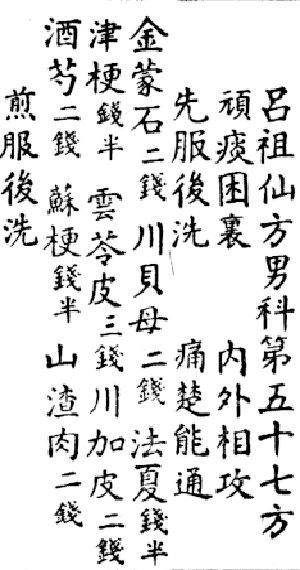 呂祖仙方男科第五十七方
頑痰困裏　內外相攻
先服後洗　痛楚能通
金蒙石二錢　川貝母二錢　法夏錢半
津梗錢半　雲苓皮三錢　川加皮二錢
酒芍二錢　蘇梗錢半　山渣肉二錢
煎服後洗